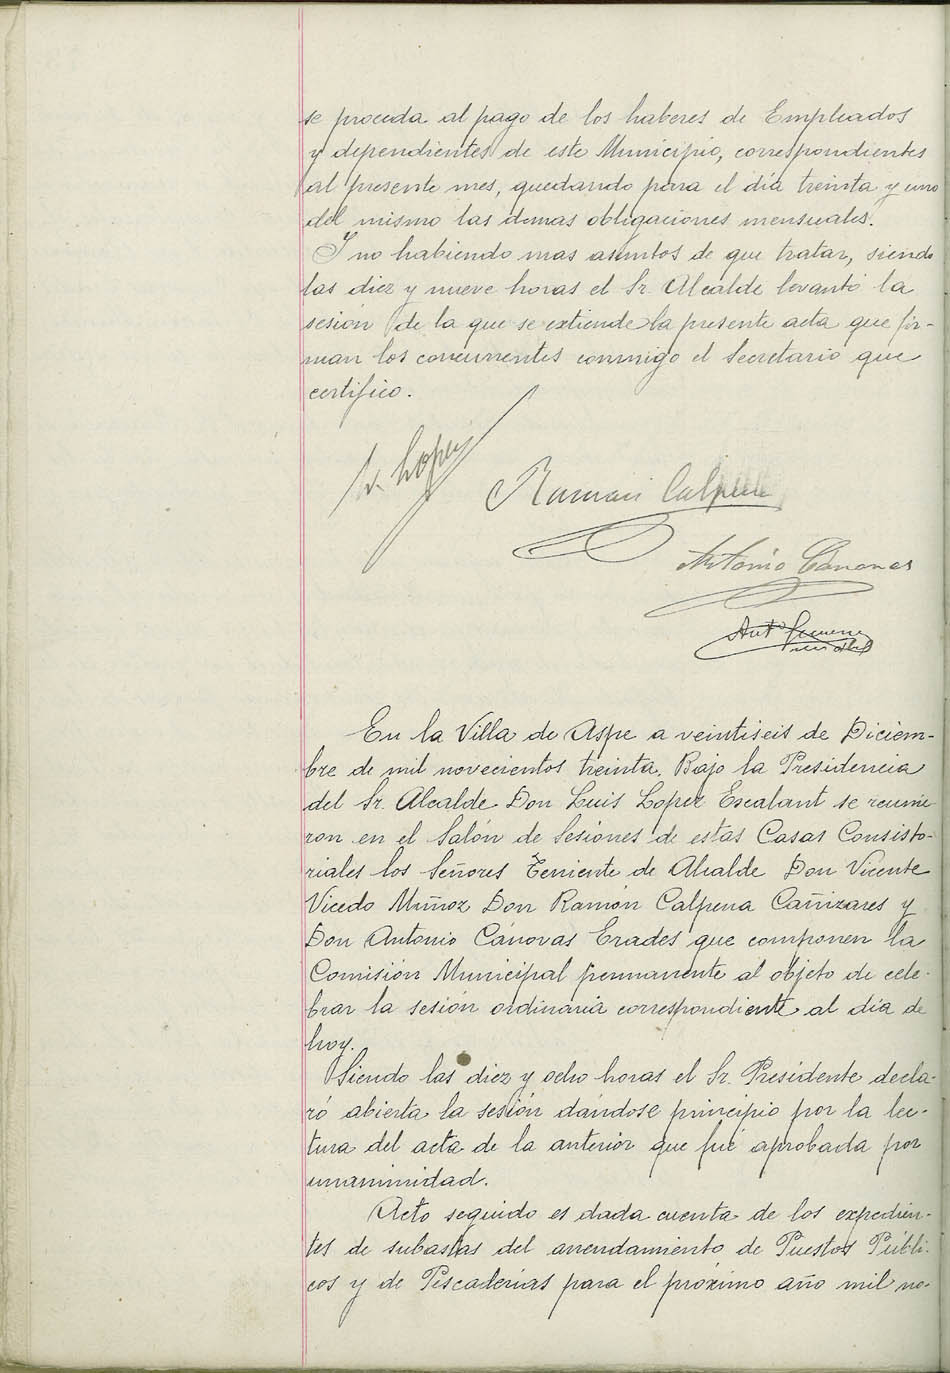 se proceda al pago de los haberes de Empleados
y dependientes de este Municipio, correspondientes
al presente mes, quedando para el día treinta y uno
del mismo las demas obligaciones mensuales.
Y no habiendo mas asuntos de que tratar, siendo
las diez y nueve horas el Sr. Alcalde levantó la
sesion de la que se extiende la presente acta que fir-
man los concurrentes conmigo el Secretario que
certifico.
L. Lopez
Ramón Calpena
Antonio Cánovas
Antº
En la Villa de Aspe a veintiseis de Diciem-
bre de mil novecientos treinta. Bajo la Presidencia
del Sr. Alcalde Don Luis Lopez Escalant se reunie-
ron en el Salón de Sesiones de estas Casas Consisto-
riales los Señores Teniente de Alcalde Don Vicente
Vicedo Muñoz Don Ramón Calpena Cañizares y
Don Antonio Cánovas Erades que componen la
Comisión Municipal permanente al objeto de cele-
brar la sesión ordinaria correspondiente al día de
hoy.
Siendo las diez y ocho horas el Sr. Presidente decla-
ró abierta la sesión dandose principio por la lec-
tura del acta de la anterior que fué aprobada por
unanimidad.
Acto seguido es dada cuenta de los expedien-
tes de subastas del arrendamiento de Puestos Públi-
cos y de Pescaderias para el próximo año mil no-